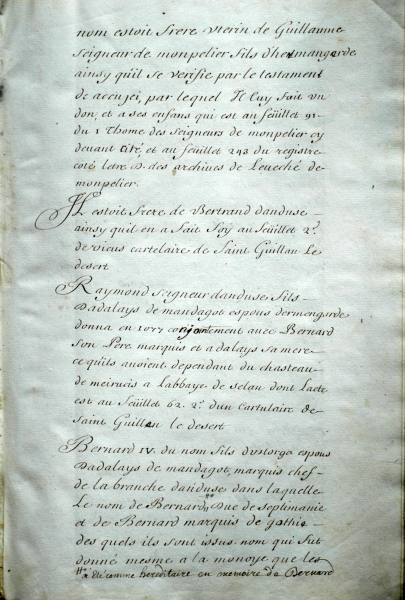 nom estoit frere vterin de Guillaume
seigneur de monpelier fils dhermangarde
ainsy quil se verifie par le testament
de par lequel Il luy fait vn
don, et a ses enfans qui est au feüillet 91.
du 1 Thome des seigneurs de monpelier cy
deuant Cité, et au feüillet 243 du registre
coté letre D. des archives de Leueché de
monpelier.
Il estoit frere de Bertrand danduse
ainsy quil en a fait foy au feüillet 2.
de vieus cartelaire de Saint Guillau Le
desert
Raymond seigneur danduse fils
Dadalays de mandagot espous dermengarde
donna en 1077 conjointement auec Bernard
son Pere marquis et adalays sa mere
ce quils auoient dependant du chasteau
de meirueis a Labbaye de selau dont Lacte
est au feüillet 62. 2. dun Cartulaire de
Saint Guillau le desert
Bernard IV. du nom fils dvstorga espous
Dadalays de mandagot, marquis chef
de la branche danduse dans laquelle
Le nom de Bernard, Duc de septimanie
et de Bernard marquis de gothie
des quels ils sont issus nom qui fut
donné mesme a la monoye que les
a Eté comme hereditaire en memoire de Bernard